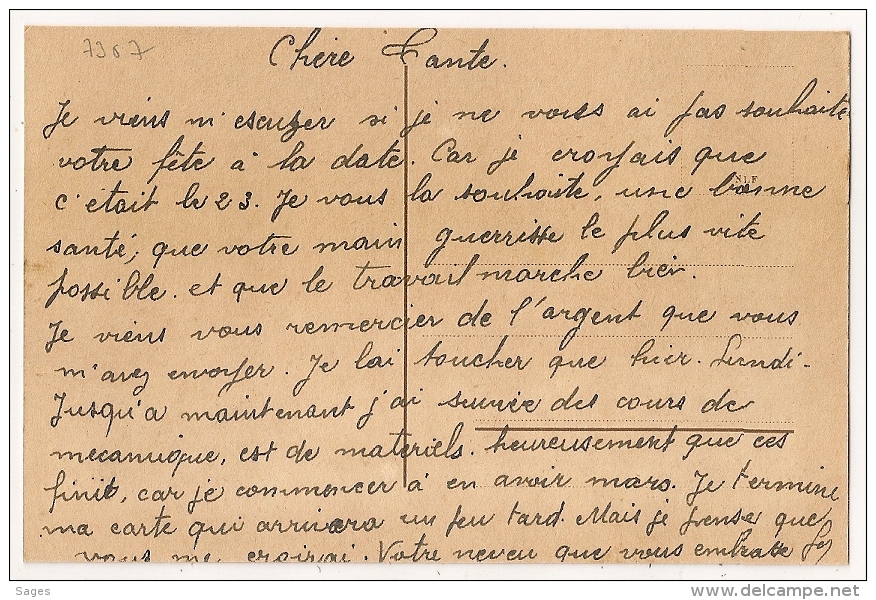 7367
Chère Tante.
Je viens m'escuzer si je ne vous ai pas souhaite
votre fête à la date. Car je croyais que
NLF
c'était le 23. Je vous la souhaite, une bonne
santé, que votre main guerrisse le plus vite
possible. et que le travail marche bien.
Je viens vous remercier de l'argent que vous
m'avez envoyer. Je lai toucher que hier. Lundi-
Jusqu'a maintenant j'ai suivée des cours de
mecanique, est de materiels. heureusement que ces
finit, car je commencer à en avoir mare. Je termine
ma carte qui arrivera un peu tard. Mais je pense que
vous me croirai. Votre neveu que vous embrasse
Sages
www.delcampe.net